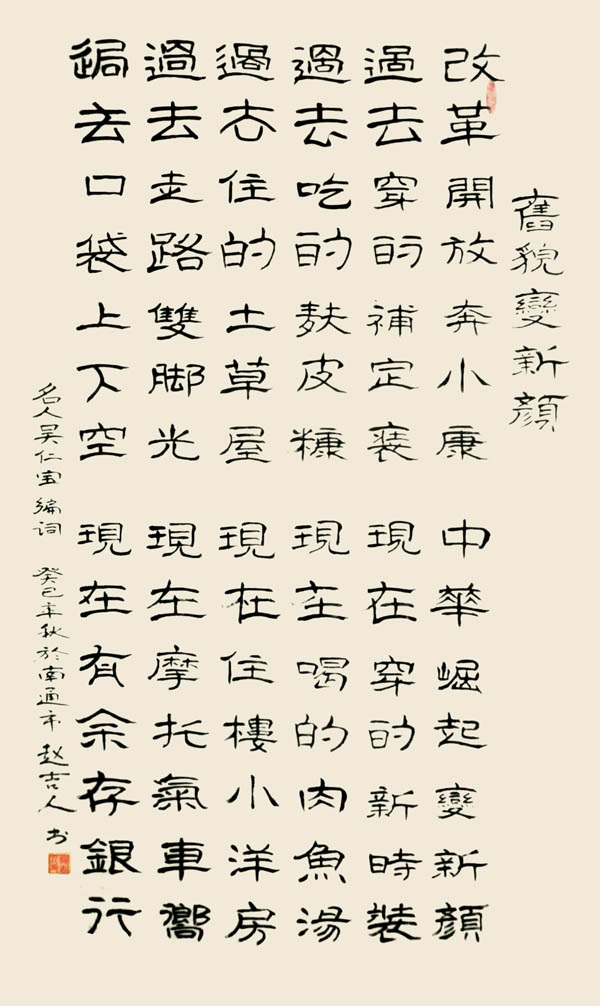 舊貌變新顏
改革開放奔小康 中華崛起變新顏
過去穿的補定 現在穿的新時裝
過去吃的麩皮糠 現在喝的肉魚湯
過去住的土草屋 現在住樓小洋房
過去走路雙脚光 現在摩托氣車嚮
過去口袋上下空 現在有余存銀行
名人吴仁宝編词 癸巳年秋於南通市 赵吉人书